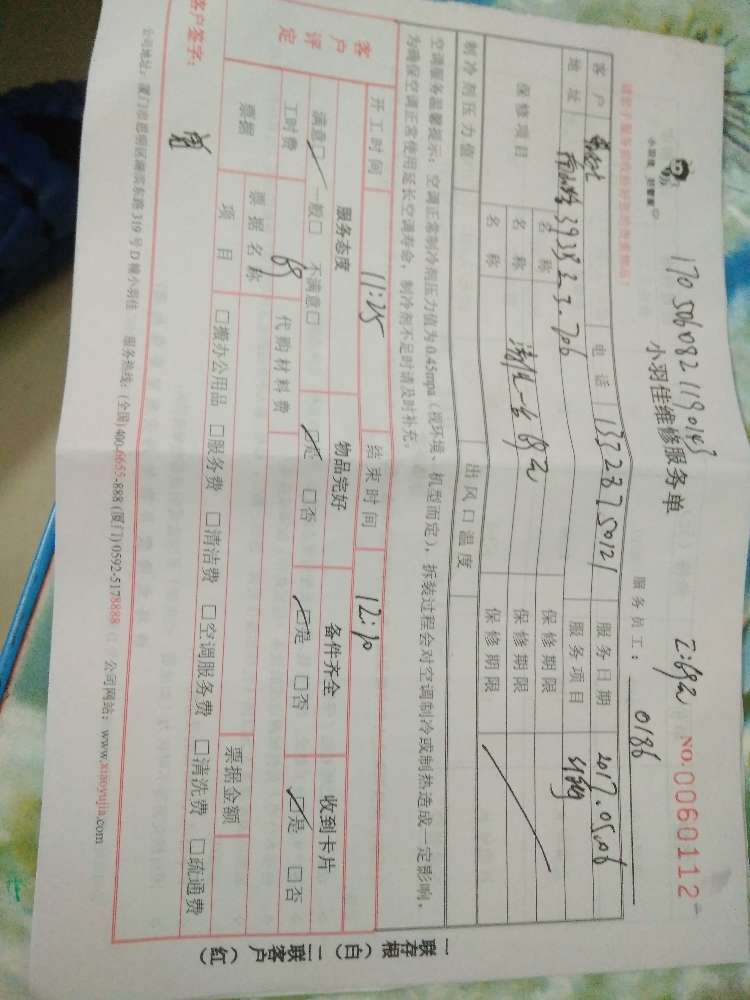 170506082119043
小羽佳 好管家
小羽佳维修服务单
NO.0060112
服务员工: 0186
客户 电话 13328750121 服务日期 2017.05.06
地址 393号 2-3.706 服务项目
保修项目 名称 保修期限
名称 清洗一台 保修期限
名称 保修期限
制冷剂压力值 出风口温度
空调服务温馨提示:空调正常制冷剂压力值为0.45mpa(视环境、机型而定),拆装过程会对空调制冷或制热造成一定影响,
为确保空调正常使用延长空调寿命,制冷剂不足时请及时补充。
开工时间 11:25 结束时间 12:10
客户评定 服务态度 物品完好 备件齐全 收到卡片
满意□ 一般□ 不满意□ □是 □否 □是 □否 □是 □否
工时费 69 代购材料费
票据 票据名称 票据金额
项目 □搬办公用品 □服务费 □清洁费 □空调服务费 □清洗费 □疏通费
客户签字:
公司地址:厦门市思明区湖滨东路319号D幢小羽佳 服务热线:(全国)400-6655-888 (厦门)0592-5178888 公司网站:www.xiaoyujia.com
一联存根(白) 二联客户(红)